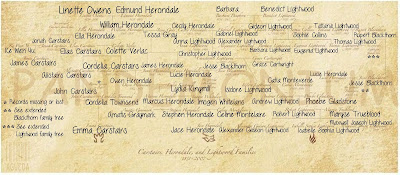 Linette Owens Edmund Herondale Barbara Benedict Lightwood
William Herondale Cecily Herondale Gideon Lightwood Tatiana Lightwood
Jonah Carstairs Ella Herondale Tessa Gray Gabriel Lightwood Sophie Collins Rupert Blackthorn
Anna Lightwood Alexander Lightwood Thomas Lightwood
Ke Wen Yu Elias Carstairs Colette Verlac Christopher Lightwood Barbara Lightwood Eugenia Lightwood ***
James Carstairs Cordelia Carstairs James Herondale Jesse Blackthorn Grace Cartwright
Alicia Carstairs Owen Herondale Lucie Herondale Lucie Herondale Jesse Blackthorn
John Carstairs Lydia Kingsmill Isidore Lightwood Gadia Monteverde **
* Records missing or lost Cordelia Townsend Marcus Herondale Imogen Whitelaw Andrew Lightwood Phoebe Gladstone
** See extended Blackthorn family tree Amatis Graymark Stephen Herondale Celine Montclaire Robert Lightwood Maryse Trueblood
*** See extended Lightwood family tree
Maxwell Joseph Lightwood
Emma Carstairs Jace Herondale Alexander Gideon Lightwood Isabelle Sophia Lightwood
Carstairs, Herondale, and Lightwood Families